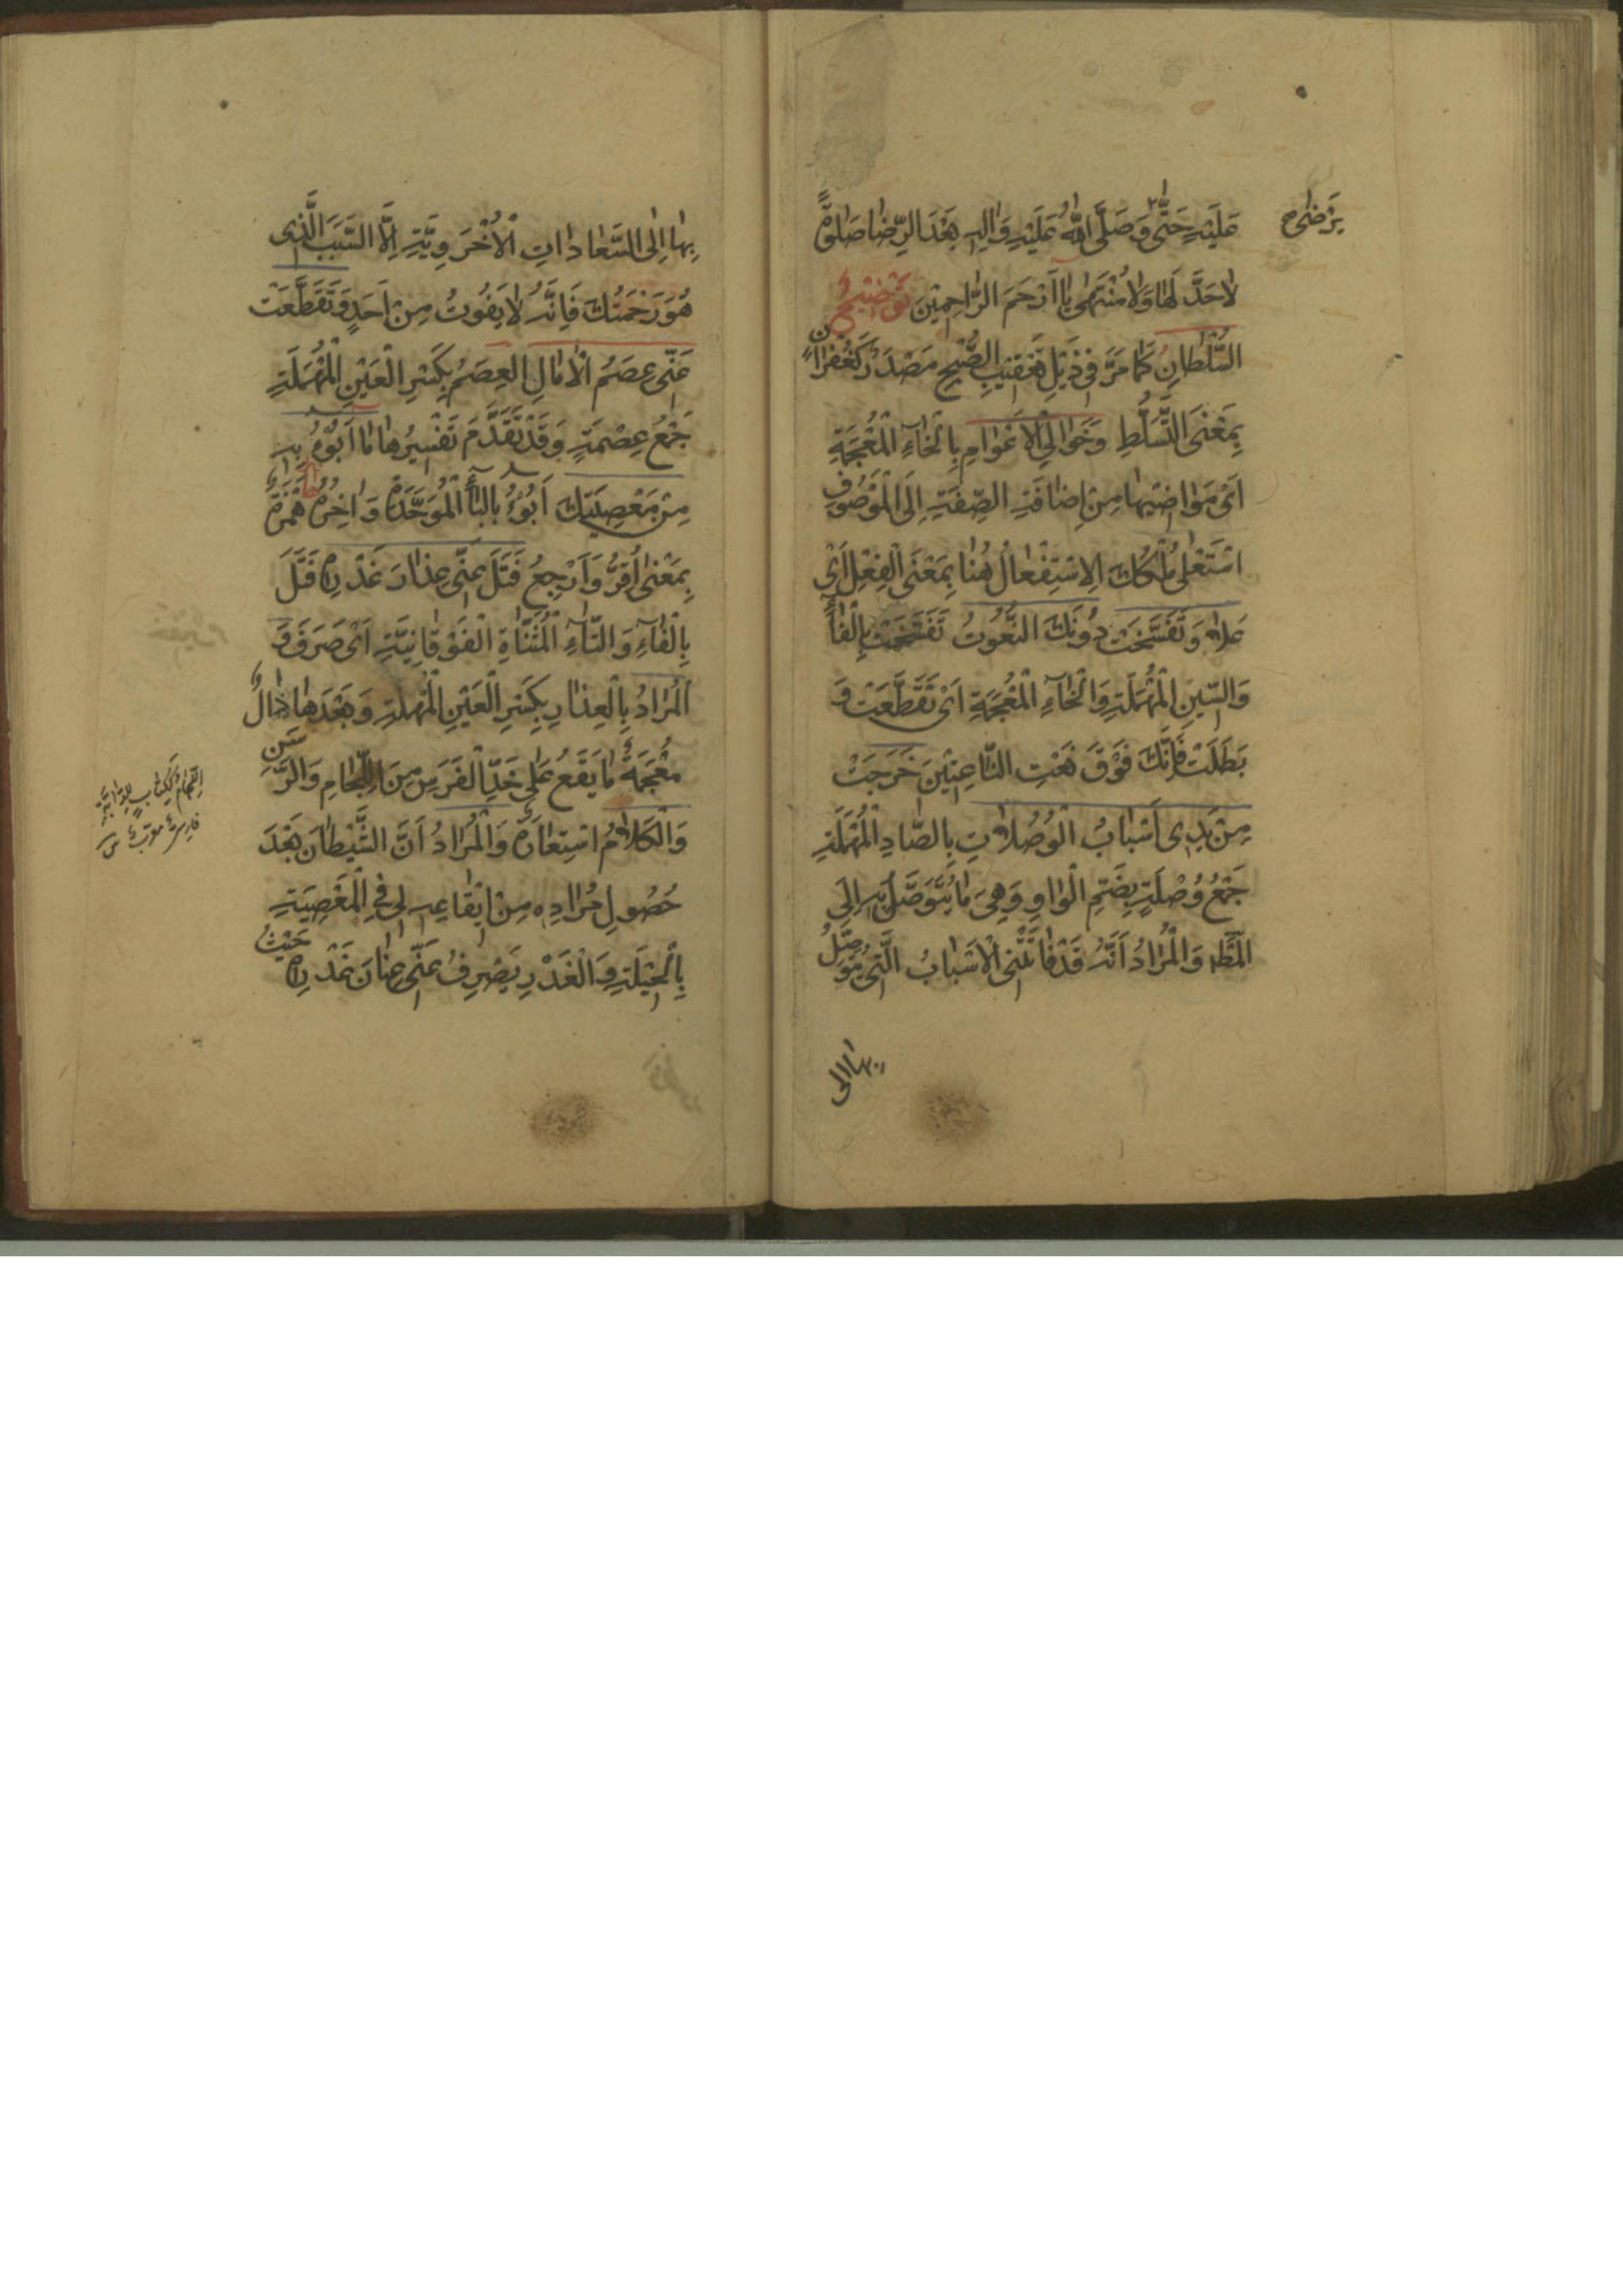 عَلَيْهِ حَتّٰى وَصَلَّى اللّٰهُ عَلَيْهِ وَاٰلِهِ بَعْدَ الرِّضَا صَلٰوةً
يَرْضٰى
لَاحَدَّ لَهَا وَلَا مُنْتَهٰى يَا اَرْحَمَ الرَّاحِمِيْنَ تَوْضِيْحٌ
السُّلْطَانِ كَمَا مَرَّ فِي ذَيْلِ تَعْقِيْبِ الصُّبْحِ مَصْدَرٌ كَغُفْرَانٍ
بِمَعْنَى التَّسَلُّطِ وَخَوَالِي الْاَعْوَامِ بِالْخَاۤءِ الْمُعْجَمَةِ
اَىْ مَوَاضِيْهَا مِنْ اِضَافَةِ الصِّفَةِ اِلَى الْمَوْصُوْفِ
اسْتَعْلٰى مُلْكُكَ الِاسْتِفْعَالُ هُنَا بِمَعْنَى الْفِعْلِ اَىْ
عَلَا وَتَفَسَّخَتْ دُوْنَكَ النُّعُوْتُ تَفَسَّخَتْ بِالْفَاۤءِ
وَالسِّيْنِ الْمُهْمَلَةِ وَالْخَاۤءِ الْمُعْجَمَةِ اَىْ تَقَطَّعَتْ وَ
بَطَلَتْ فَاِنَّكَ فَوْقَ نَعْتِ النَّاعِتِيْنَ خَرَجَتْ
مِنْ يَدِى اَسْبَابُ الْوُصُلَاتِ بِالصَّادِ الْمُهْمَلَةِ
جَمْعُ وُصْلَةٍ بِضَمِّ الْوَاوِ وَهِىَ مَا يُتَوَصَّلُ بِهِ اِلَى
الْمَطْ وَالْمُرَادُ اَنَّهُ قَدْ فَاتَتْنِى الْاَسْبَابُ الَّتِى يُتَوَصَّلُ
بها الى
بِهَا اِلَى السَّعَادَاتِ الْاُخْرَوِيَّةِ اِلَّا السَّبَبَ الَّذِى
هُوَ رَحْمَتُكَ فَاِنَّهُ لَا يَفُوْتُ مِنْ اَحَدٍ وَتَقَطَّعَتْ
عَنِّى عِصَمُ الْاٰمَالِ الْعِصَمُ بِكَسْرِ الْعَيْنِ الْمُهْمَلَةِ
جَمْعُ عِصْمَةٍ وَقَدْ تَقَدَّمَ تَفْسِيْرُهَا مَا اَبُوْءُ بِهِ
مِنْ مَعْصِيَتِكَ اَبُوْءُ بِالْبَاۤءِ الْمُوَحَّدَةِ وَاٰخِرُهُ هَمْزَةٌ
بِمَعْنٰى اُقِرُّ وَاَرْجِعُ فَتَلَ عَنِّى عِذَارَ غَدْرِهِ فَتَلَ
بِالْفَاۤءِ وَالتَّاۤءِ الْمُثَنَّاةِ الْفَوْقَانِيَّةِ اَىْ صَرَفَ وَ
الْمُرَادُ بِالْعِذَارِ بِكَسْرِ الْعَيْنِ الْمُهْمَلَةِ وَبَعْدَهَا ذَالٌ
مُعْجَمَةٌ مَا يَقَعُ عَلٰى خَدِّ الْفَرَسِ مِنَ اللِّجَامِ وَالرَّسَنِ
وَالْكَلَامُ اسْتِعَارَةٌ وَالْمُرَادُ اَنَّ الشَّيْطَانَ بَعْدَ
حُصُوْلِ مُرَادِهِ مِنْ اِيْقَاعِهِ لِى فِى الْمَعْصِيَةِ
بِالْحِيْلَةِ وَالْغَدْرِ يَصْرِفُ عَنِّى عِنَانَ غَدْرِهِ حَيْثُ
اللِّجَامُ كَكِتَابٍ لِلدَّابَّةِ
فارسىّ معرّب